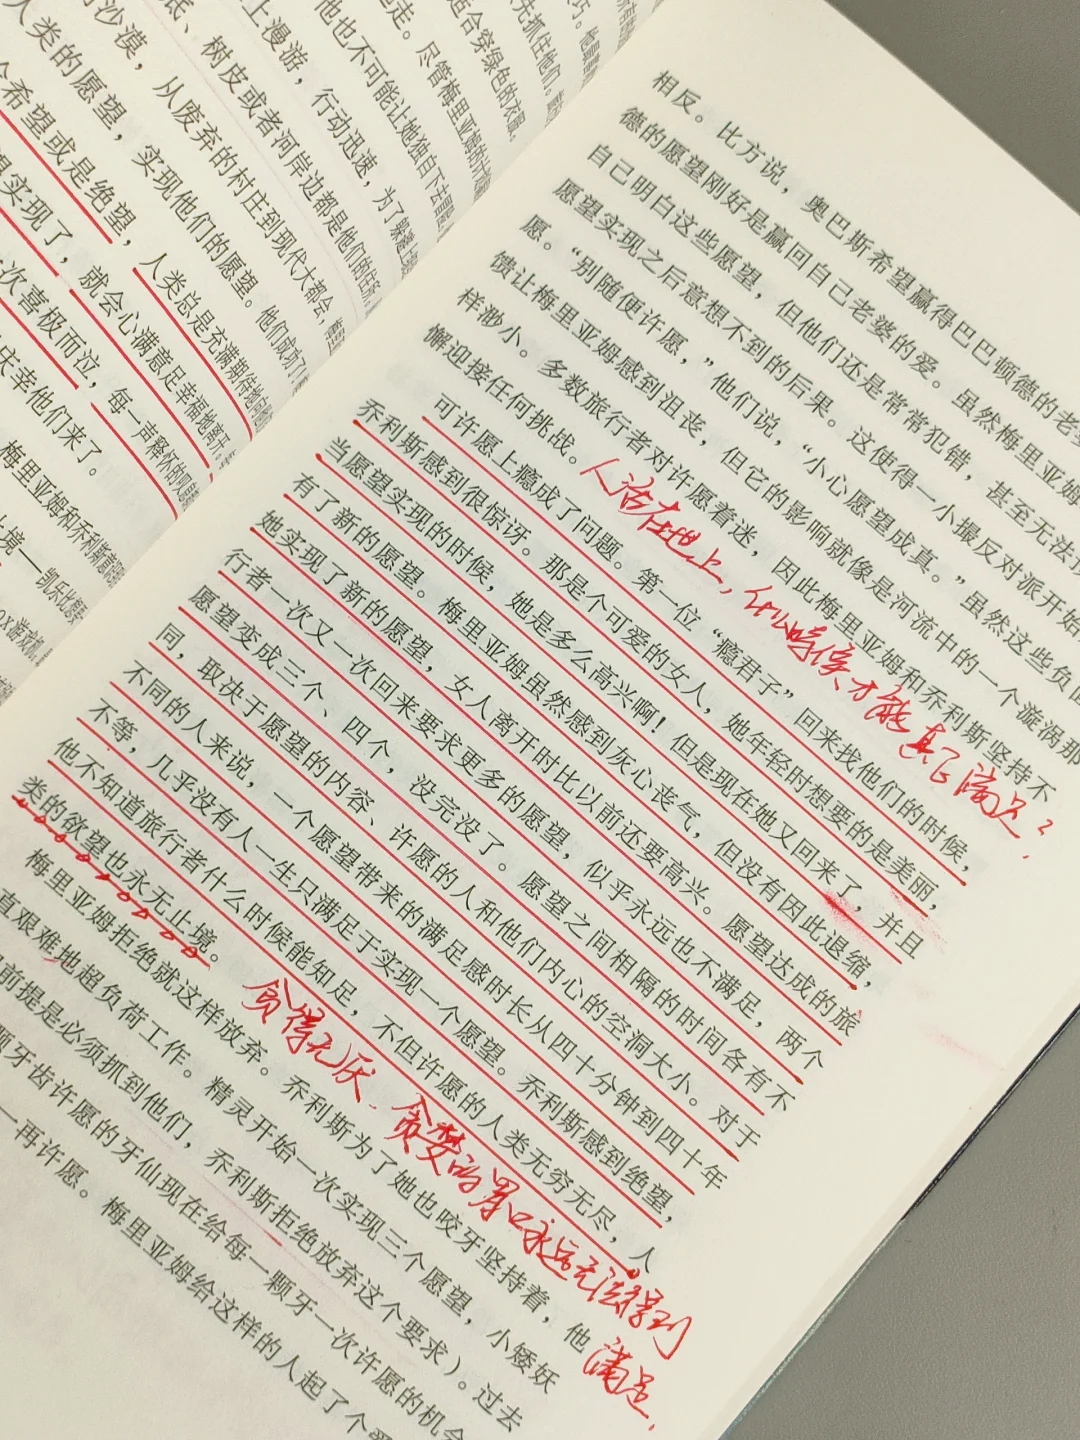 所有的
巧。他最
先抓住他们。
适合穿绿色的衣服。
走。尽管梅里亚姆的计划
他也不可能让她独自下去冒险
上漫游，行动迅速，为了躲避
底、树皮或者河岸边都是他们的住所。
沙漠，从废弃的村庄到现代大都会，
人类的愿望，实现他们的愿望。他们成功了！
希望或是绝望，人类总是充满期待地向
望实现了，就会心满意足幸福地离开。
次喜极而泣，每一声释怀的
庆幸他们来了。
梅里亚姆和乔利斯
境——凯乐比
OX游戏机
相反。比方说，奥巴斯希望赢得巴巴顿德的老婆
德的愿望刚好是赢回自己老婆的爱。虽然梅里亚姆
自己明白这些愿望，但他们还是常常犯错，甚至无法预
愿望实现之后意想不到的后果。这使得一小撮反对派开始
愿。“别随便许愿，”他们说，“小心愿望成真。”虽然这些负面
馈让梅里亚姆感到沮丧，但它的影响就像是河流中的一个漩涡那
样渺小。多数旅行者对许愿着迷，因此梅里亚姆和乔利斯坚持不
懈迎接任何挑战。
人活在世上，什么时候才能真正满足？
可许愿上瘾成了问题。第一位“瘾君子”回来找他们的时候，
乔利斯感到很惊讶。那是个可爱的女人，她年轻时想要的是美丽，
当愿望实现的时候，她是多么高兴啊！但是现在她又回来了，并且
有了新的愿望。梅里亚姆虽然感到灰心丧气，但没有因此退缩，
她实现了新的愿望，女人离开时比以前还要高兴。愿望达成的旅
行者一次又一次回来要求更多的愿望，似乎永远也不满足，两个
愿望变成三个、四个，没完没了。愿望之间相隔的时间各有不
同，取决于愿望的内容、许愿的人和他们内心的空洞大小。对于
不同的人来说，一个愿望带来的满足感时长从四十分钟到四十年
不等，几乎没有人一生只满足于实现一个愿望。乔利斯感到绝望，
他不知道旅行者什么时候能知足，不但许愿的人类无穷无尽，人
类的欲望也永无止境。
贪得无厌、贪婪的胃口永远无法得到
满足，
梅里亚姆拒绝就这样放弃。乔利斯为了她也咬牙坚持着，他
直艰难地超负荷工作。精灵开始一次实现三个愿望，小矮妖
前提是必须抓到他们，乔利斯拒绝放弃这个要求）。过去
颗牙齿许愿的牙仙现在给每一颗牙一次许愿的机会
一再许愿。梅里亚姆给这样的人起了个